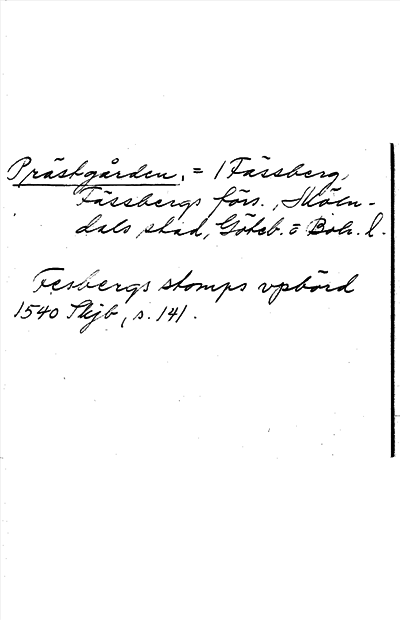 Prästgården, = 1 Fässberg,
Fässbergs förs., Möln-
dals stad, Göteb. o Boh. l.
Fesbergs stomps vpbörd
1540 Skjb, s. 141.